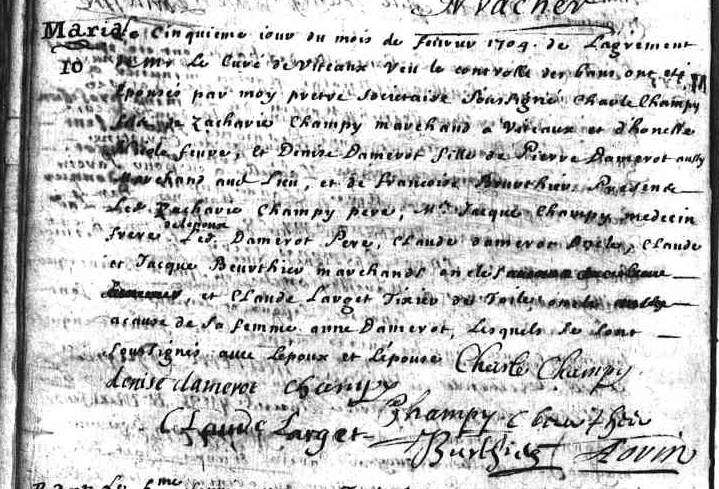 Vacher
Mariage Le Cinquieme iour du mois de feuvrier 1704. de Lagrement
10 de Mr Le Curé de Viteaux veu le controlle des bans ont eté
Epousés par moy pretre Societaire Soussigné Charle Champy
fils de Zacharie Champy marchand a Viteaux et d'honeste
Nicole feuvre, et Denise Damerot fille de Pierre Damerot aussy
Marchand aud Lieu, et de francoise Beurthier. Presens
Led Zacharie Champy pere, Mr Jacque Champy medecin
frere de lepoux Led. Damerot Pere, Claude damerot, Claude
et Jacque Beurthier marchands oncles
et Claude Larget Tixier de Toile, oncle
acause de Sa femme anne Damerot, Lesquels Se Sont
Soussignés avec Lepoux et Lepouse Charle Champy
denise damerot Champy
Champy C beurthier
Claude Larget Burthier